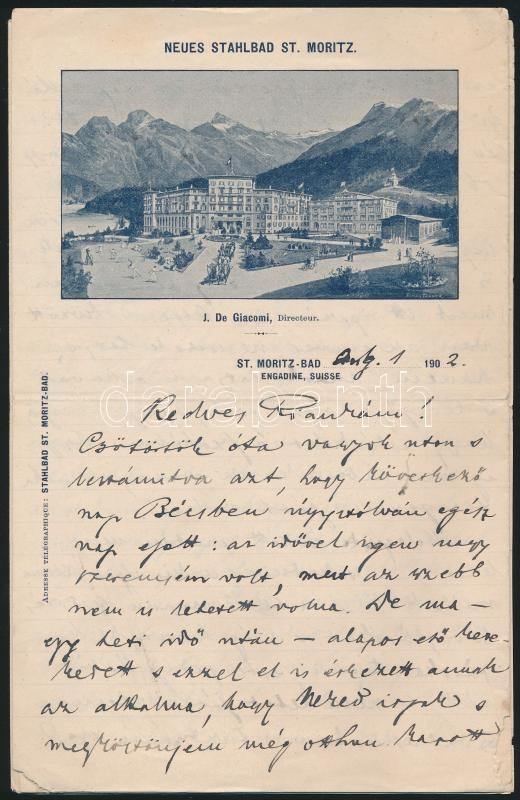 NEUES STAHLBAD ST. MORITZ.
J. De Giacomi, Directeur.
ST. MORITZ-BAD Aug. 1 1902.
ENGADINE, SUISSE
ADRESSE TÉLÉGRAPHIQUE: STAHLBAD ST. MORITZ-BAD.
darabanth
Kedves Barátném!
Csötörtök óta vagyok uton s
leszámitva azt, hogy következő
nap Bécsben úgyszólván egész
nap esett: az idővel igen nagy
szerencsém volt, mert az szebb
nem is lehetett volna. De ma –
egy heti idő után – alapos eső
kedett s ezzel el is érkezett annak
az alkalma, hogy Neked irjak s
megköszönjem még otthon kapott